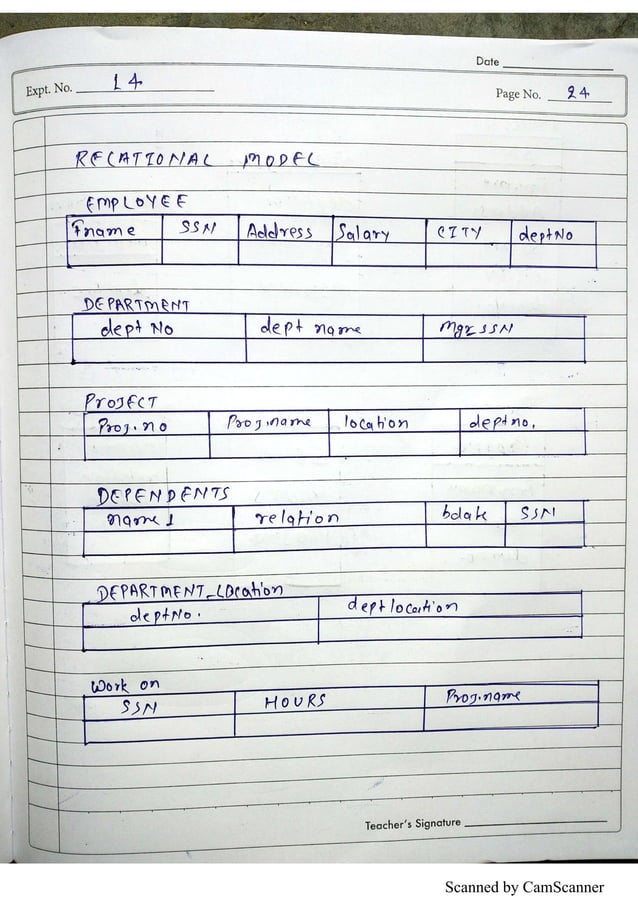 Date
Expt. No. 14
Page No. 24
RELATIONAL MODEL
EMPLOYEE
Fname SSN Address Salary CITY deptNo
DEPARTMENT
dept No dept name MgrSSN
PROJECT
Proj.no Proj.name location deptno.
DEPENDENTS
name1 relation bdate SSN
DEPARTMENT_Location
deptNo. deptlocation
Work on
SSN HOURS Proj.name
Teacher's Signature
Scanned by CamScanner